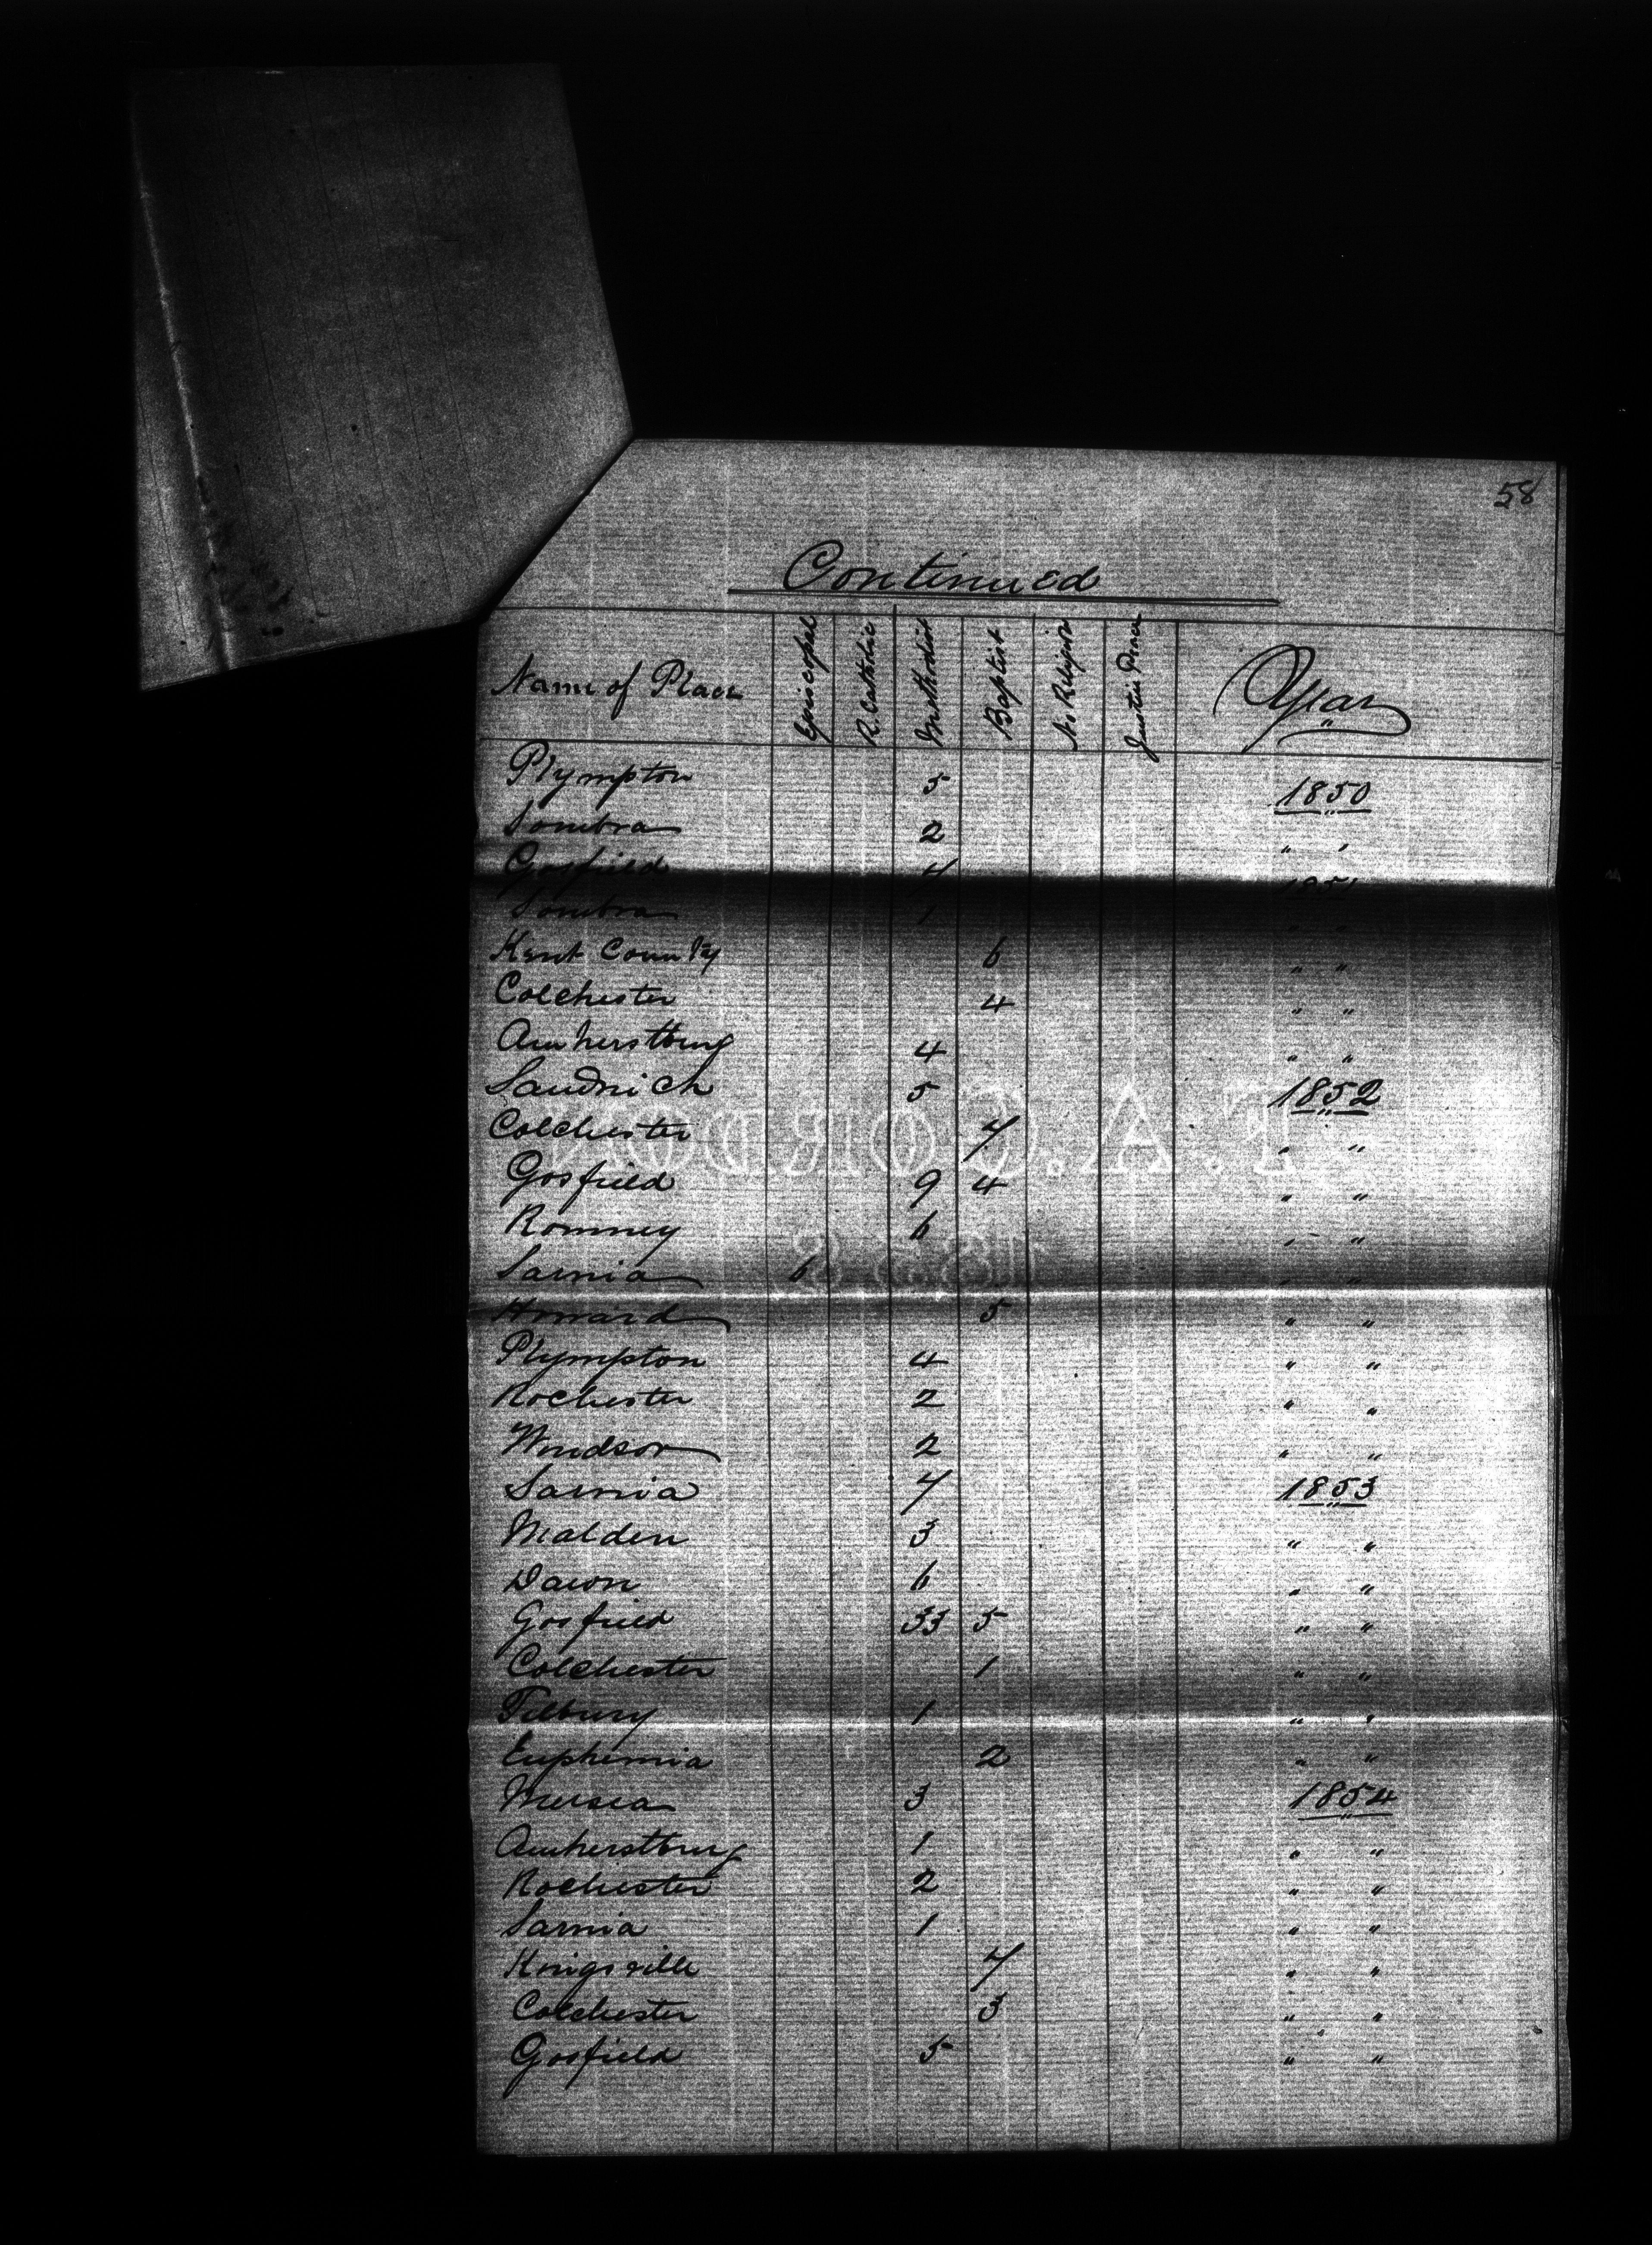 58
Continued
Name of Place Episcopal R. Catholic Methodist Baptist No Religion Justice Peace Year
Plympton 5 1850
Sombra 2 " "
Gosfield 4 1851
Sombra 1 " "
Kent County 6 " "
Colchester 4 " "
Amherstburg 4 " "
Sandwich 5 1852
Colchester 7 " "
Gosfield 9 4 " "
Romney 6 " "
Sarnia 6 " "
Howard 5 " "
Plympton 4 " "
Rochester 2 " "
Windsor 2 " "
Sarnia 7 1853
Malden 3 " "
Dawn 6 " "
Gosfield 33 5 " "
Colchester 1 " "
Tilbury 1 " "
Euphemia 2 " "
Mersea 3 1854
Amherstburg 1 " "
Rochester 2 " "
Sarnia 1 " "
Kingsville 7 " "
Colchester 3 " "
Gosfield 5 " "